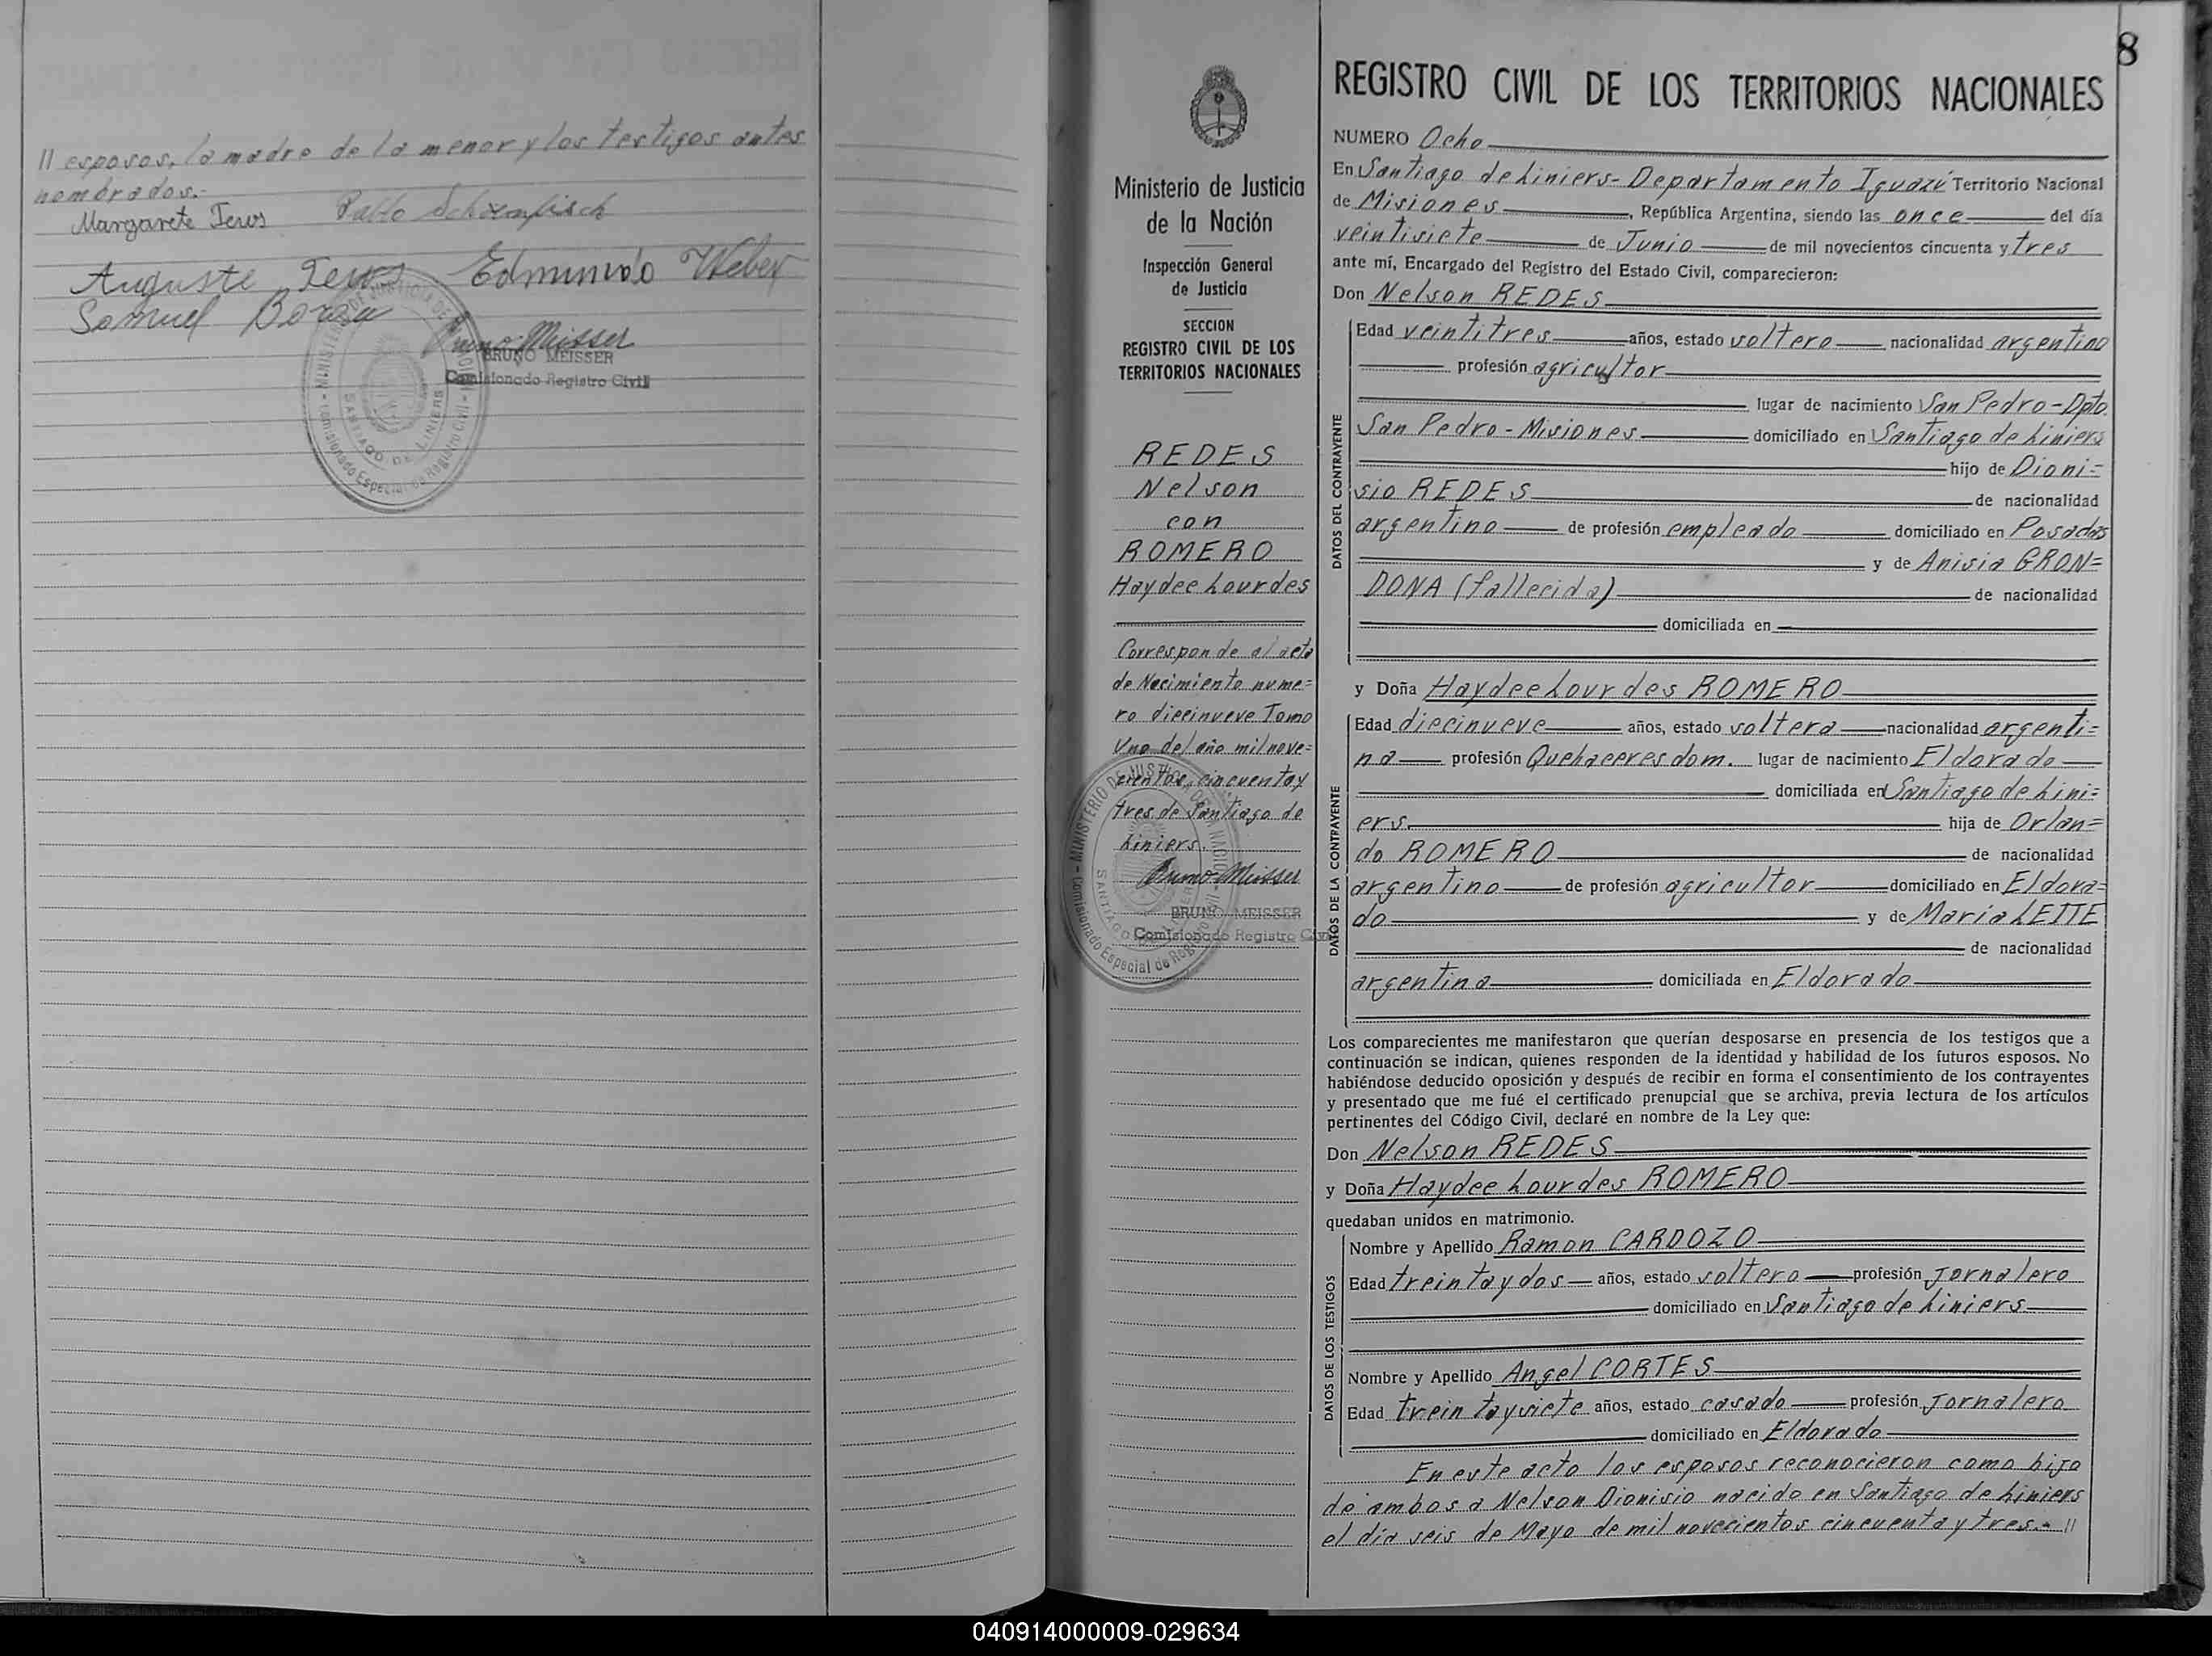 // esposos, la madre de la menor y los testigos antes
nombrados.-
Margarete Pablo
Auguste Edmundo Weber
Samuel
Bruno Meisser
BRUNO MEISSER
Comisionado Registro Civil
MINISTERIO DE JUSTICIA DE LA NACION
SANTIAGO DE LINIERS
Comisionado Especial de Registro Civil
8
Ministerio de Justicia
de la Nación
Inspección General
de Justicia
SECCION
REGISTRO CIVIL DE LOS
TERRITORIOS NACIONALES
REDES
Nelson
con
ROMERO
Haydee Lourdes
Corresponde al acta
de Nacimiento nume=
ro diecinueve Tomo
Uno del año mil nove=
cientos cincuenta y
tres de Santiago de
Liniers.
Bruno Meisser
BRUNO MEISSER
Comisionado Registro Civil
MINISTERIO DE JUSTICIA DE LA NACION
SANTIAGO
Comisionado Especial de Registro Civil
REGISTRO CIVIL DE LOS TERRITORIOS NACIONALES
NUMERO Ocho
En Santiago de Liniers - Departamento Iguazú Territorio Nacional
de Misiones, República Argentina, siendo las once del día
veintisiete de Junio de mil novecientos cincuenta y tres
ante mí, Encargado del Registro del Estado Civil, comparecieron:
Don Nelson REDES
DATOS DEL CONTRAYENTE
Edad veintitres años, estado soltero nacionalidad argentino
profesión agricultor
lugar de nacimiento San Pedro - Dpto.
San Pedro - Misiones domiciliado en Santiago de Liniers
hijo de Dioni=
sio REDES de nacionalidad
argentino de profesión empleado domiciliado en Posadas
y de Anisia GRON=
DONA (fallecida) de nacionalidad
domiciliada en
y Doña Haydee Lourdes ROMERO
DATOS DE LA CONTRAYENTE
Edad diecinueve años, estado soltera nacionalidad argenti=
na profesión Quehaceres dom. lugar de nacimiento Eldorado
domiciliada en Santiago de Lini=
ers. hija de Orlan=
do ROMERO de nacionalidad
argentino de profesión agricultor domiciliado en Eldora=
do y de Maria LEITE
de nacionalidad
argentina domiciliada en Eldorado
Los comparecientes me manifestaron que querían desposarse en presencia de los testigos que a
continuación se indican, quienes responden de la identidad y habilidad de los futuros esposos. No
habiéndose deducido oposición y después de recibir en forma el consentimiento de los contrayentes
y presentado que me fué el certificado prenupcial que se archiva, previa lectura de los artículos
pertinentes del Código Civil, declaré en nombre de la Ley que:
Don Nelson REDES
y Doña Haydee Lourdes ROMERO
quedaban unidos en matrimonio.
DATOS DE LOS TESTIGOS
Nombre y Apellido Ramon CARDOZO
Edad treinta y dos años, estado soltero profesión Jornalero
domiciliado en Santiago de Liniers
Nombre y Apellido Angel CORTES
Edad treinta y siete años, estado casado profesión Jornalero
domiciliado en Eldorado
En este acto los esposos reconocieron como hijo
de ambos a Nelson Dionisio nacido en Santiago de Liniers
el día seis de Mayo de mil novecientos cincuenta y tres.- //
040914000009-029634